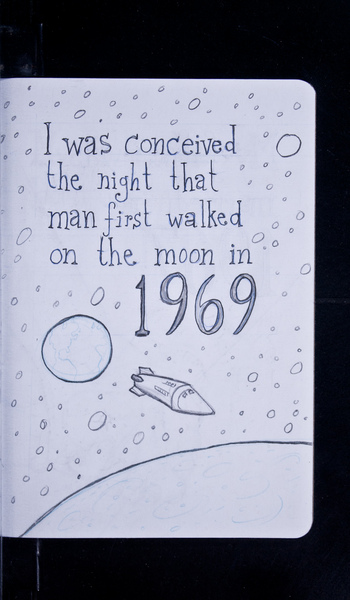 I was conceived
the night that
man first walked
on the moon in
1969